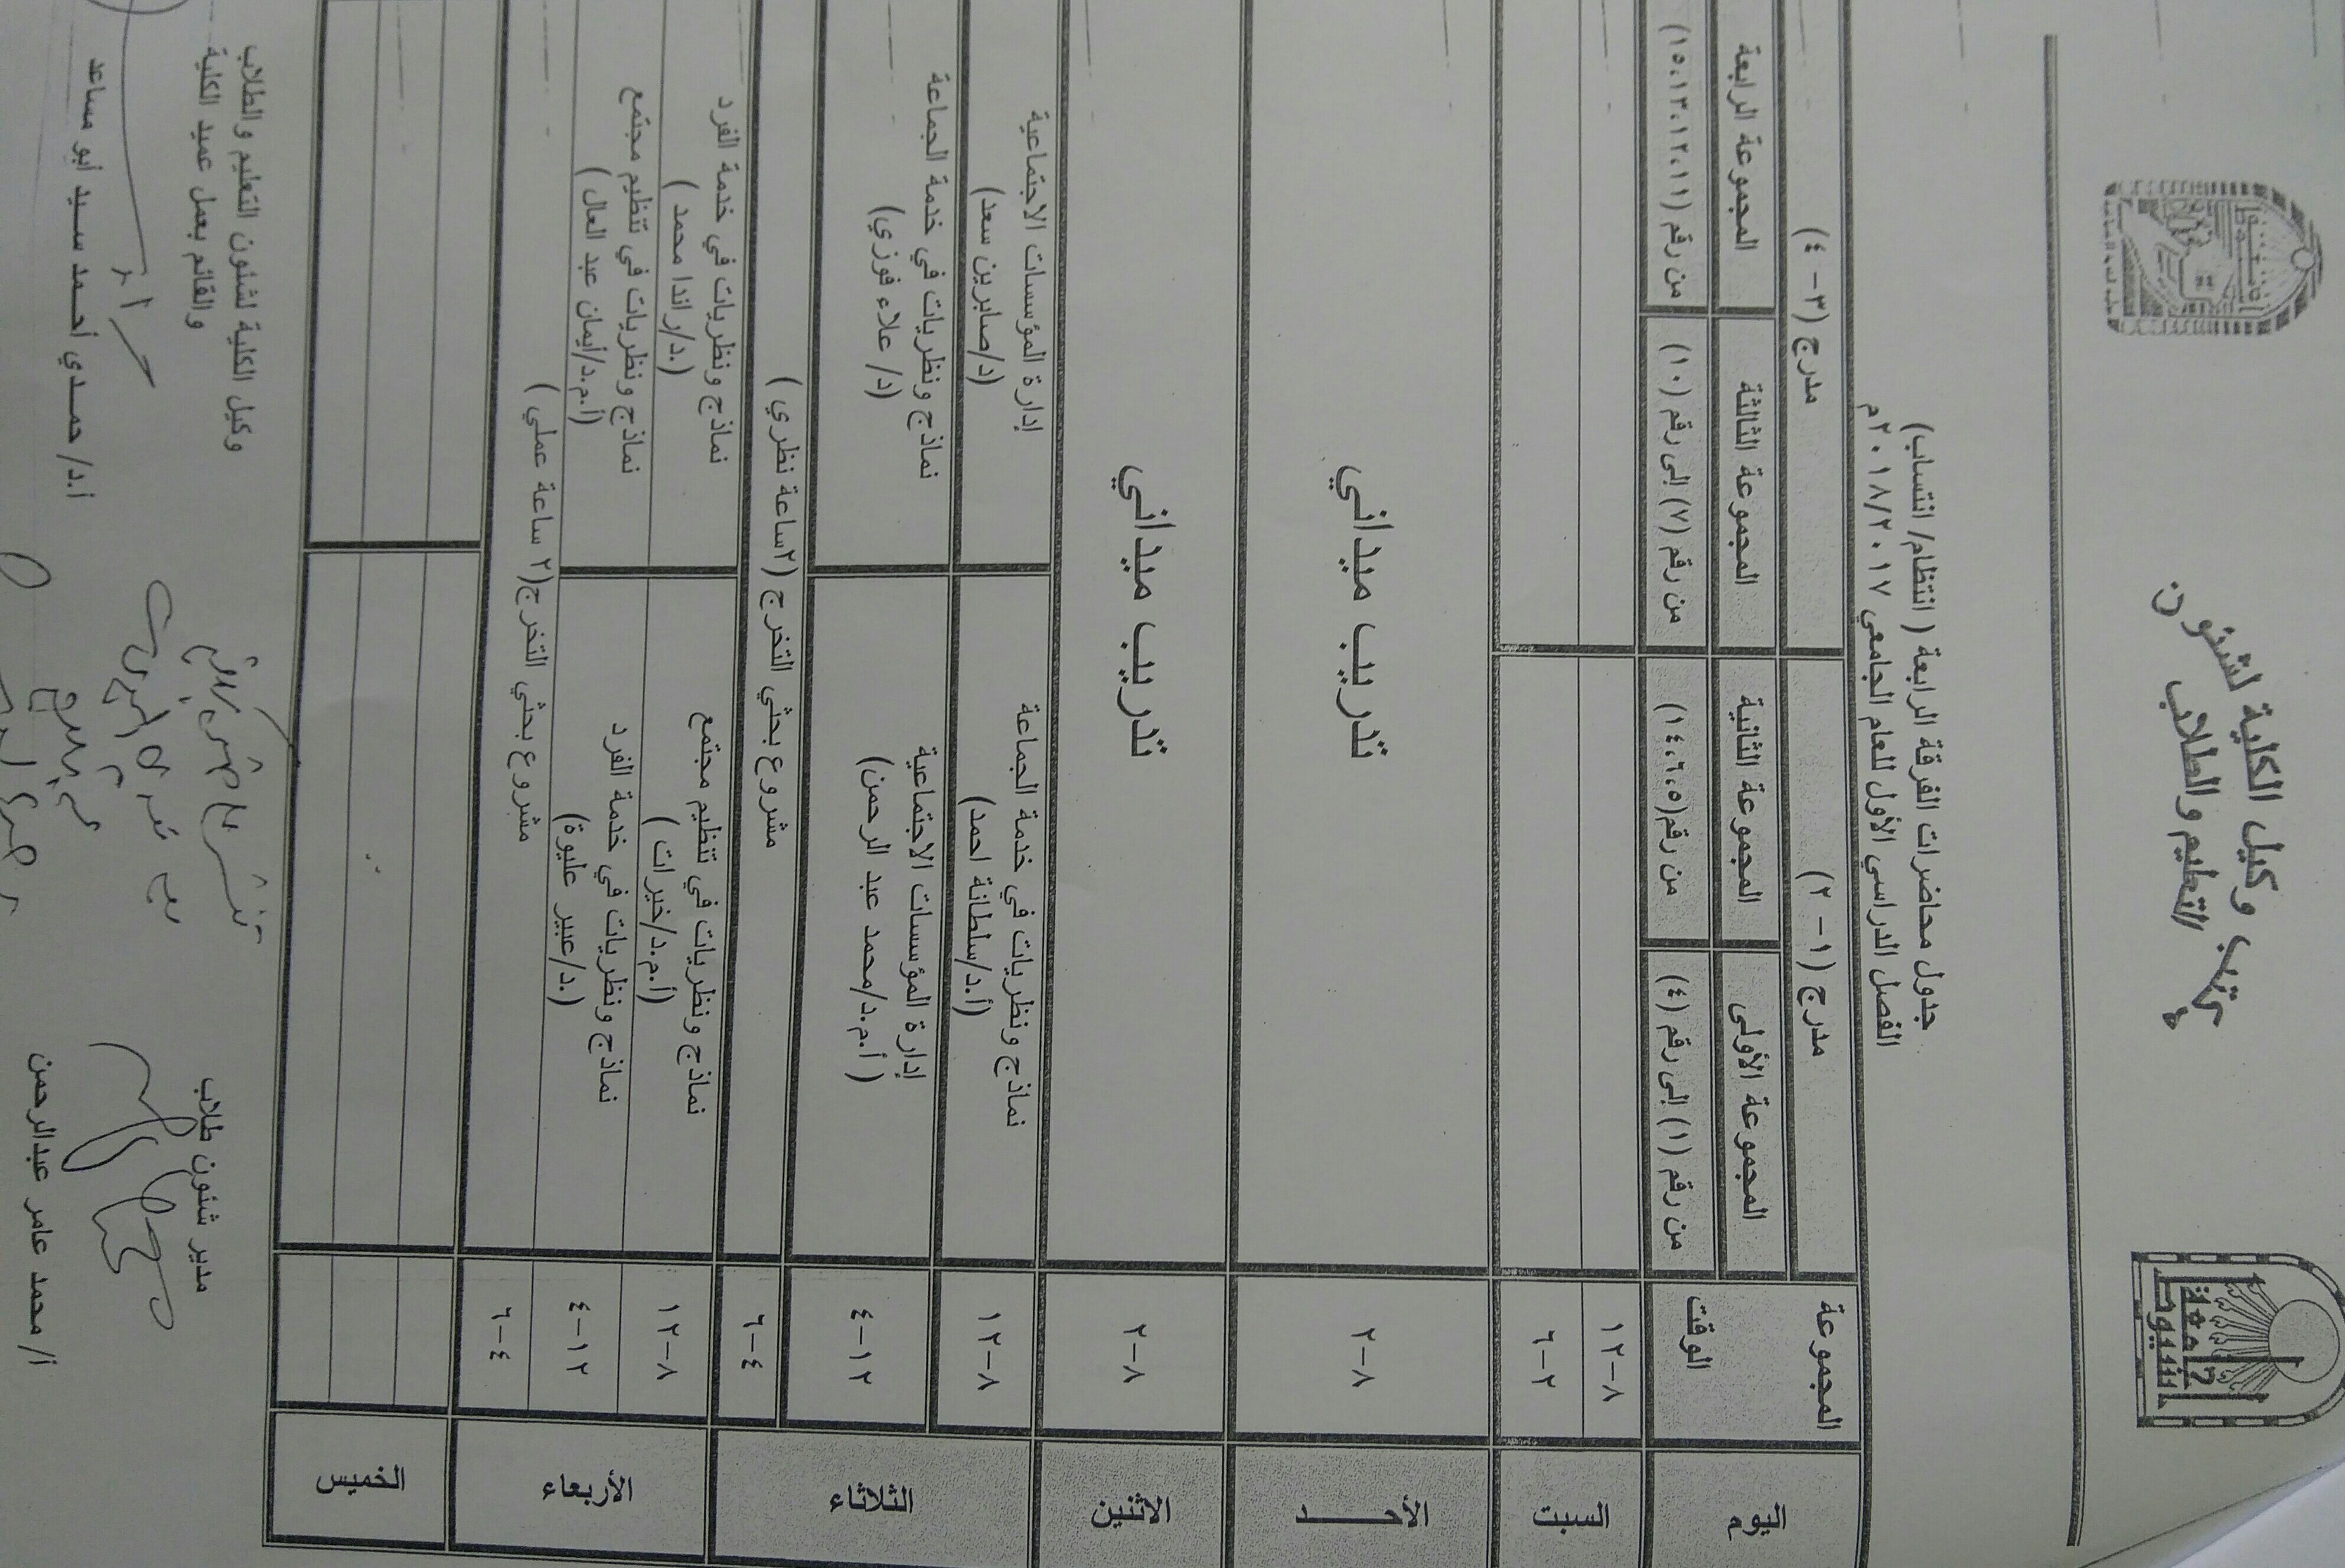 جامعة
أسيوط
مكتب وكيل الكلية لشئون
التعليم والطلاب
جدول محاضرات الفرقة الرابعة ( انتظام/ انتساب)
الفصل الدراسي الأول للعام الجامعي ٢٠١٨/٢٠١٧م
اليوم
المجموعة
الوقت
مدرج (١- ٢)
مدرج (٣- ٤)
المجموعة الأولى
المجموعة الثانية
المجموعة الثالثة
المجموعة الرابعة
من رقم (١) إلى رقم (٤)
من رقم(١٤،٦،٥)
من رقم (٧) إلى رقم (١٠)
من رقم (١٥،١٣،١٢،١١)
السبت
٨-١٢
٢-٦
الأحـــــد
٨-٢
تدريب ميداني
الاثنين
٨-٢
تدريب ميداني
الثلاثاء
٨-١٢
نماذج ونظريات في خدمة الجماعة
(أ.د/سلطانة احمد)
إدارة المؤسسات الاجتماعية
(د/صابرين سعد)
١٢-٤
إدارة المؤسسات الاجتماعية
( أ.م.د/محمد عبد الرحمن)
نماذج ونظريات في خدمة الجماعة
(د/ علاء فوزي)
٤-٦
مشروع بحثي التخرج (٢ساعة نظري )
الأربعاء
٨-١٢
نماذج ونظريات في تنظيم مجتمع
(أ.م.د/خيرات )
نماذج ونظريات في خدمة الفرد
(.د/راندا محمد )
١٢-٤
نماذج ونظريات في خدمة الفرد
(.د/عبير عليوة)
نماذج ونظريات في تنظيم مجتمع
(أ.م.د/أيمان عبد العال )
٤-٦
مشروع بحثي التخرج(٢ ساعة عملي )
الخميس
مدير شئون طلاب
أ/ محمد عامر عبدالرحمن
وكيل الكلية لشئون التعليم والطلاب
والقائم بعمل عميد الكلية
أ.د/ حمـدي أحـمد سـيد أبو مساعد